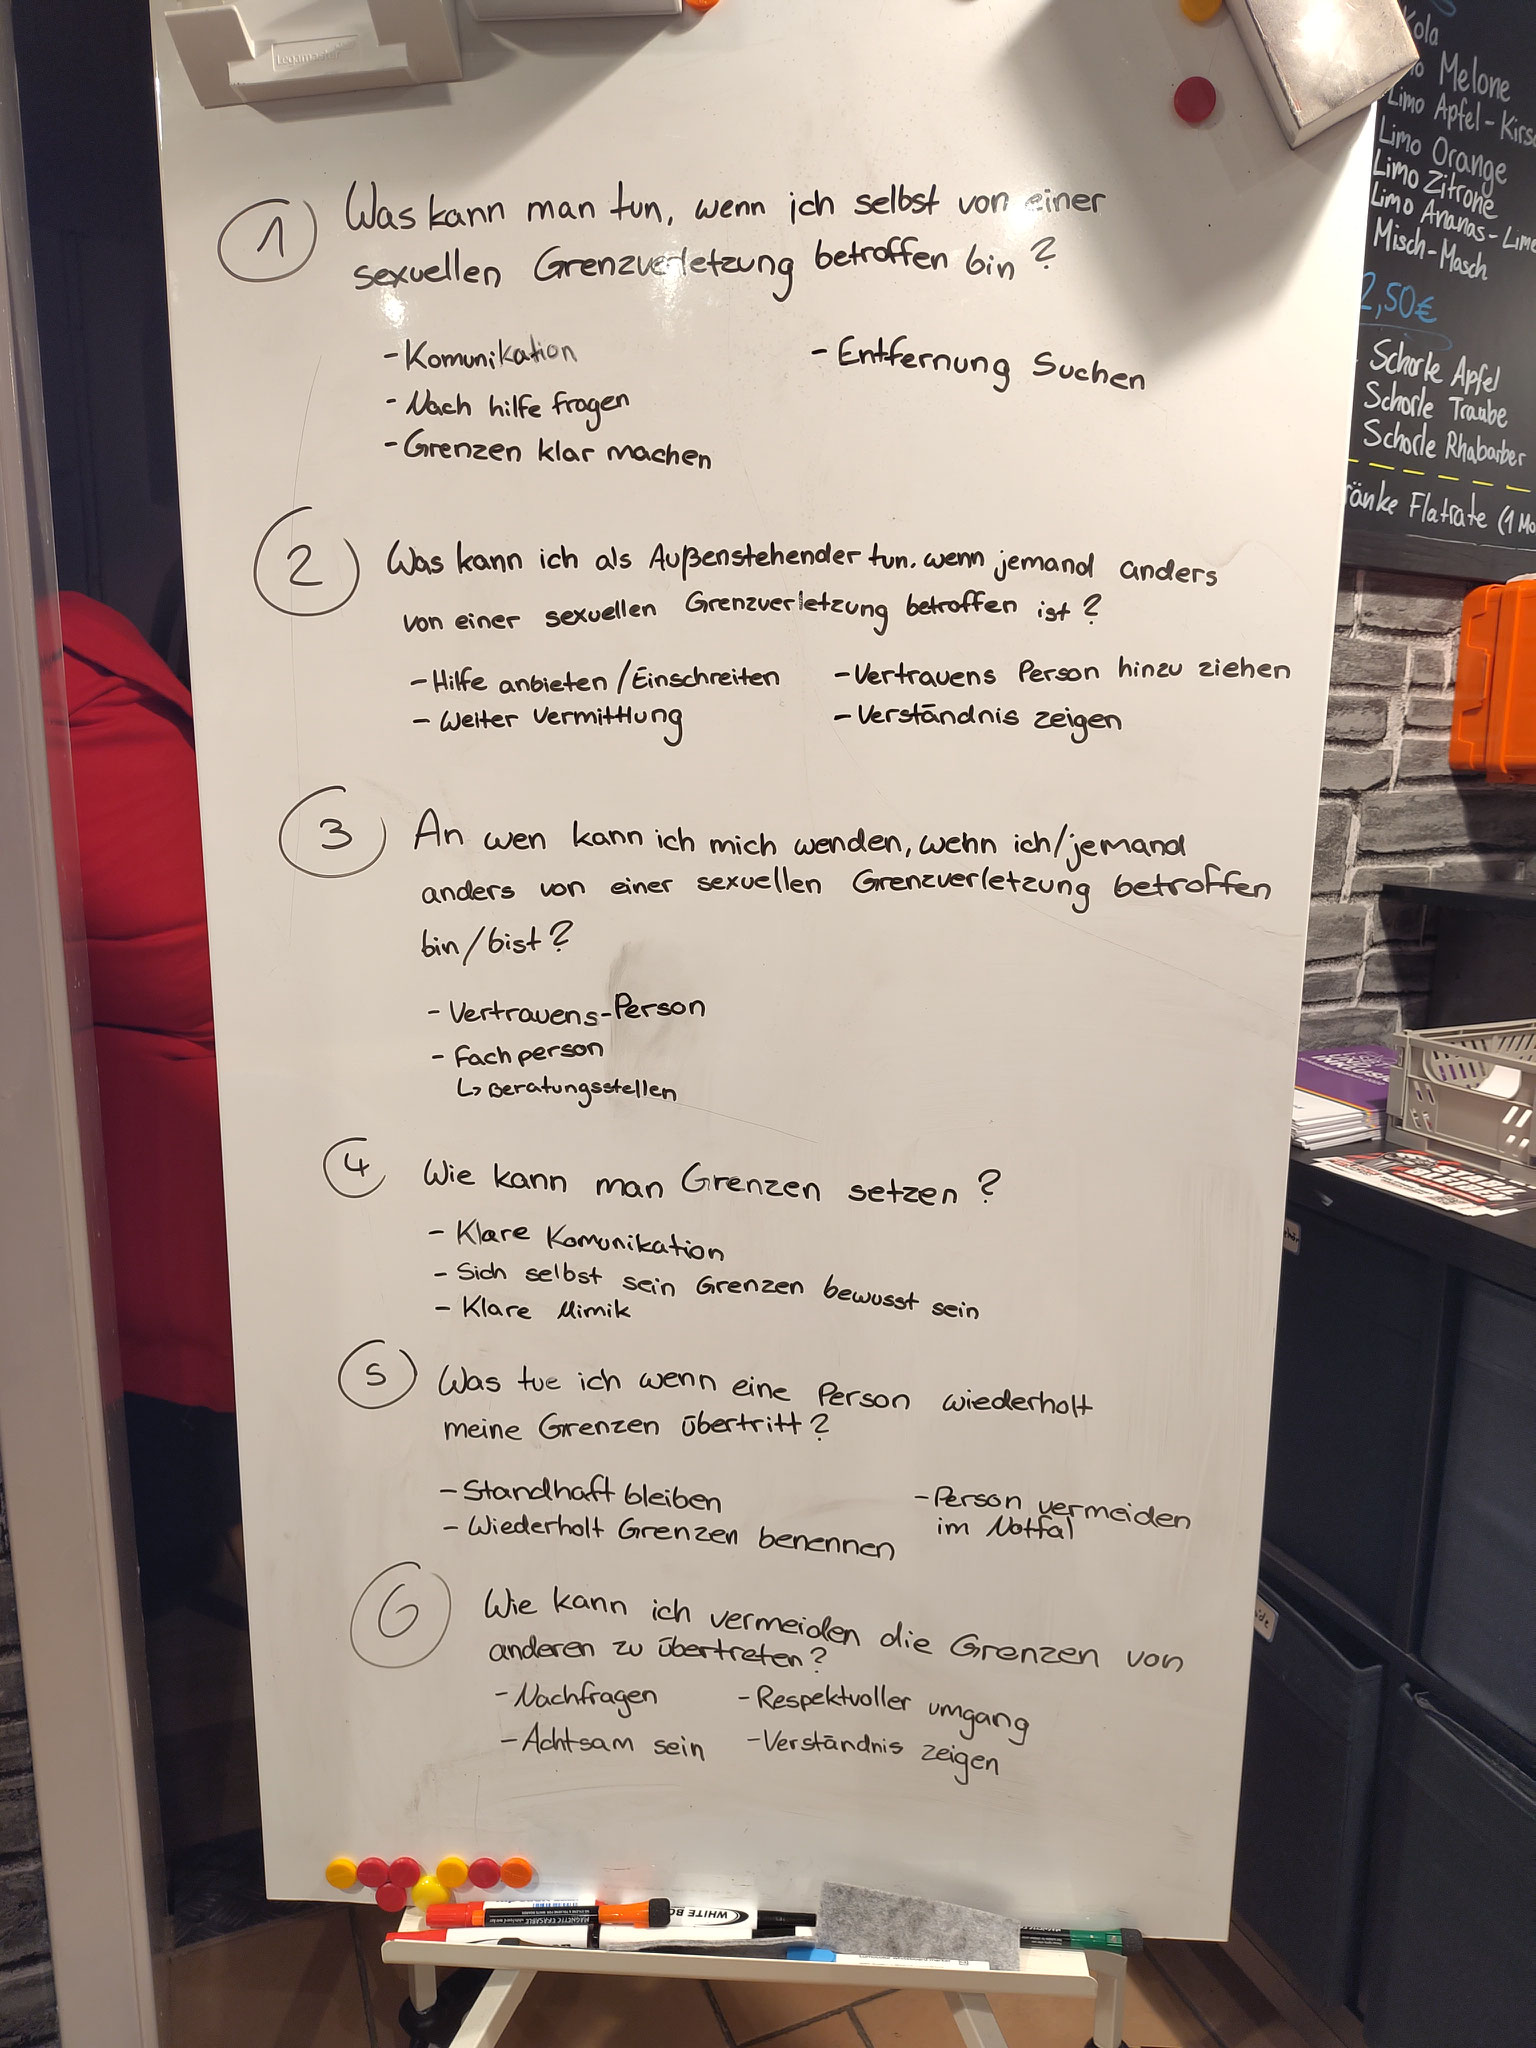 Legamaster
1
Was kann man tun, wenn ich selbst von einer
sexuellen Grenzverletzung betroffen bin?
- Komunikation
- Nach hilfe fragen
- Grenzen klar machen
- Entfernung Suchen
2
Was kann ich als Außenstehender tun. wenn jemand anders
von einer sexuellen Grenzverletzung betroffen ist?
- Hilfe anbieten / Einschreiten
- Weiter Vermittlung
- Vertrauens Person hinzu ziehen
- Verständnis zeigen
3
An wen kann ich mich wenden, wenn ich/jemand
anders von einer sexuellen Grenzverletzung betroffen
bin/bist?
- Vertrauens-Person
- Fachperson
↳ Beratungsstellen
4
Wie kann man Grenzen setzen?
- Klare Komunikation
- Sich selbst sein Grenzen bewusst sein
- Klare Mimik
5
Was tue ich wenn eine Person wiederholt
meine Grenzen übertritt?
- Standhaft bleiben
- Wiederholt Grenzen benennen
- Person vermeiden
im Notfal
6
Wie kann ich vermeiden die Grenzen von
anderen zu übertreten?
- Nachfragen
- Achtsam sein
- Respektvoller umgang
- Verständnis zeigen
Kola
Melone
Limo Apfel-Kirs
Limo Orange
Limo Zitrone
Limo Ananas-Lime
Misch-Masch
2,50€
Schorle Apfel
Schorle Traube
Schorle Rhabarber
ränke Flatrate (1 Mo
WHITE BO